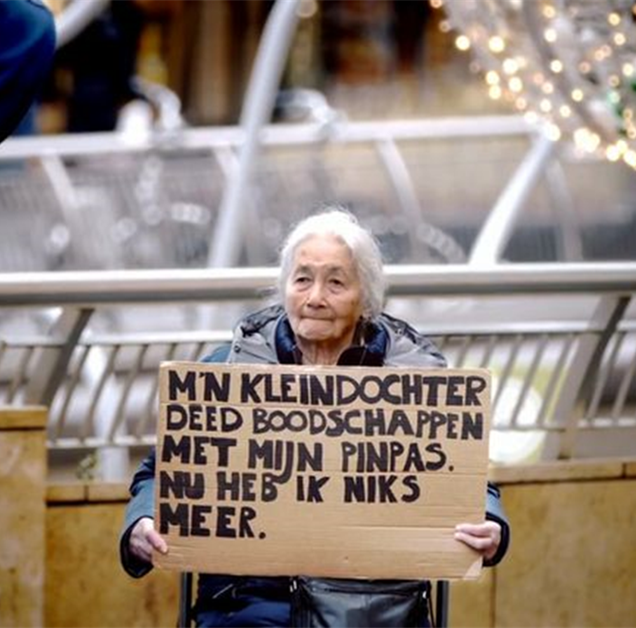 M'N KLEINDOCHTER
DEED BOODSCHAPPEN
MET MIJN PINPAS.
NU HEB IK NIKS
MEER.